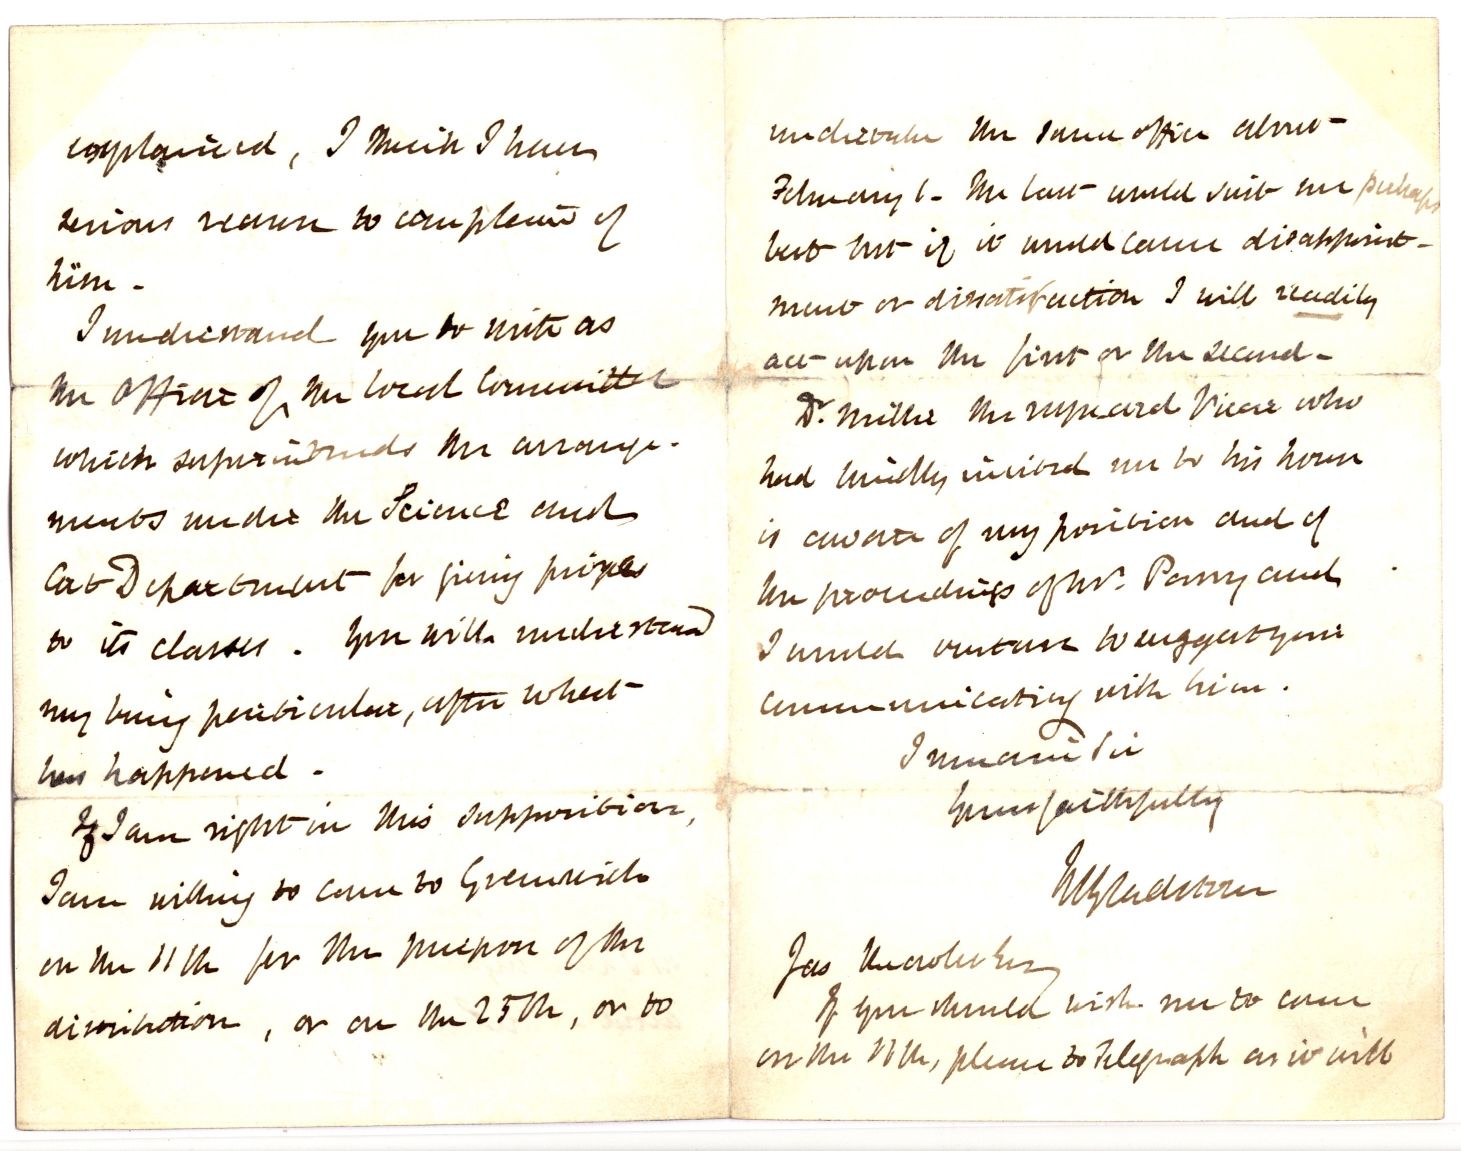 explained, I think I have
serious reason to complain of
him -
I understand you to write as
the Officer of the Local Committee
which superintends the arrange-
ments under the Science and
Art Department for giving prizes
to its classes. You will understand
my being particular, after what
has happened -
If I am right in this supposition,
I am willing to come to Greenwich
on the 11th for the purpose of the
distribution, or on the 25th, or to
undertake the same office about
February 6 - the last would suit me perhaps
best but if it would cause disappoint-
ment or dissatisfaction I will readily
act upon the first or the second -
Dr. Miller the respected Vicar who
had kindly invited me to his house
is aware of my position and of
the proceedings of Mr. Parry and
I would venture to suggest your
communicating with him.
I remain Sir
Your faithfully
WEGladstone
Jas
If you should wish me to come
on the 11th, please to Telegraph as it will